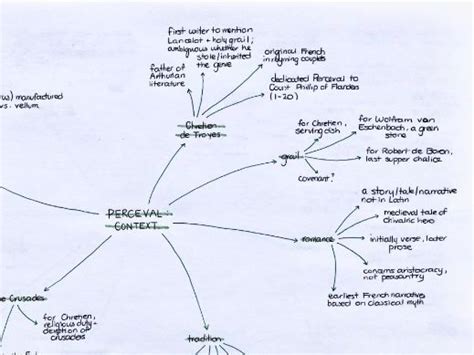 first writer to mention
Lancelot + holy grail;
ambiguous whether he
stole/inherited
the genre
father of
Arthurian
literature
original French
in rhyming couplets
dedicated Perceval to
Court Phillip of Flanders
(1-20)
manufactured
vs. vellum
Chretien
de Troyes
for Chretien,
serving dish
for Wolfram von
Eschenbach, a green
stone
grail
for Robert de Boron,
last supper chalice
covenant?
PERCEVAL:
CONTEXT
a story/tale/narrative
not in Latin
medieval tale of
chivalric hero
romance
initially verse, later
prose
concerns aristocracy,
not peasantry
earliest French narratives
based on classical myth
Crusades
for Chretien,
religious duty +
devotion of
crusades
tradition